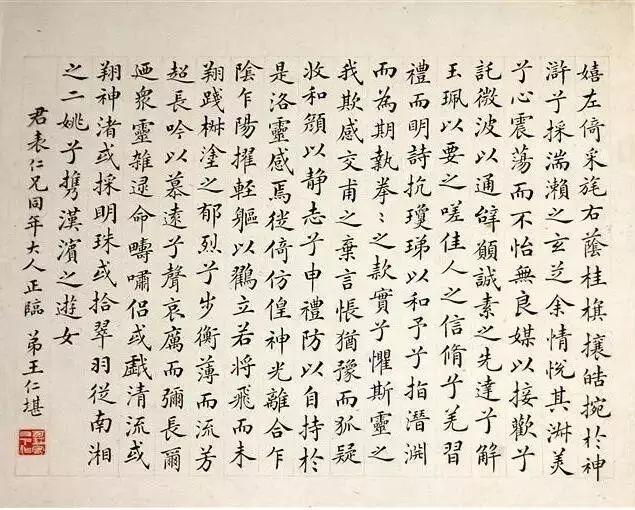 嬉左倚采旄右蔭桂旗攘皓捥於神
滸兮採湍瀨之玄芝余情悅其淑美
兮心震蕩而不怡無良媒以接歡兮
託微波以通辭願誠素之先達兮解
玉珮以要之嗟佳人之信脩兮羌習
禮而明詩抗瓊珶以和予兮指潛淵
而為期執拳〻之款實兮懼斯靈之
我欺感交甫之棄言悵猶豫而狐疑
收和顏以靜志兮申禮防以自持於
是洛靈感焉徙倚仿偟神光離合乍
陰乍陽擢輕軀以鸖立若將飛而未
翔踐椒塗之郁烈兮步衡薄而流芳
超長吟以慕遠兮聲哀厲而彌長爾
迺衆靈雜遝命疇嘯侶或戲清流或
翔神渚或採明珠或拾翠羽從南湘
之二姚兮攜漢濱之遊女
君表仁兄同年大人正臨 弟王仁堪